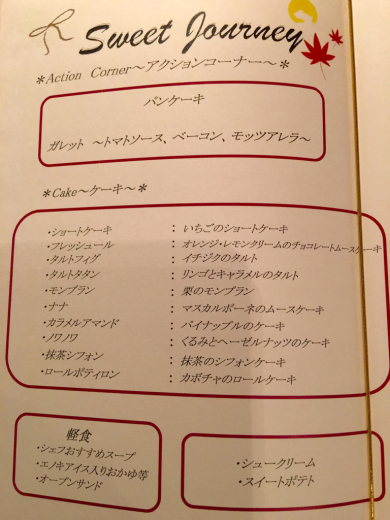 Sweet Journey
＊Action Corner～アクションコーナー～＊
パンケーキ
ガレット ～トマトソース、ベーコン、モッツアレラ～
＊Cake～ケーキ～＊
・ショートケーキ ： いちごのショートケーキ
・フレッシュール ： オレンジ・レモンクリームのチョコレートムースケーキ
・タルトフィグ ： イチジクのタルト
・タルトタタン ： リンゴとキャラメルのタルト
・モンブラン ： 栗のモンブラン
・ナナ ： マスカルポーネのムースケーキ
・カラメルアマンド ： パイナップルのケーキ
・ノワノワ ： くるみとヘーゼルナッツのケーキ
・抹茶シフォン ： 抹茶のシフォンケーキ
・ロールポティロン ： カボチャのロールケーキ
軽食
・シェフおすすめスープ
・エノキアイス入りおかゆ等
・オープンサンド
・シュークリーム
・スイートポテト